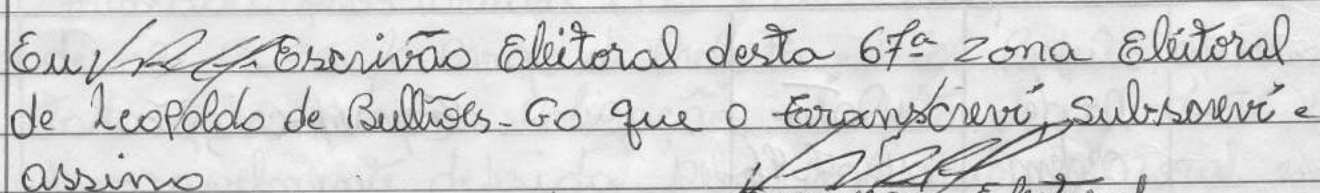 Eu, Escrivão Eleitoral desta 67ª Zona Eleitoral
de Leopoldo de Bulhões - Go que o transcrevi, subscrevi e
assino